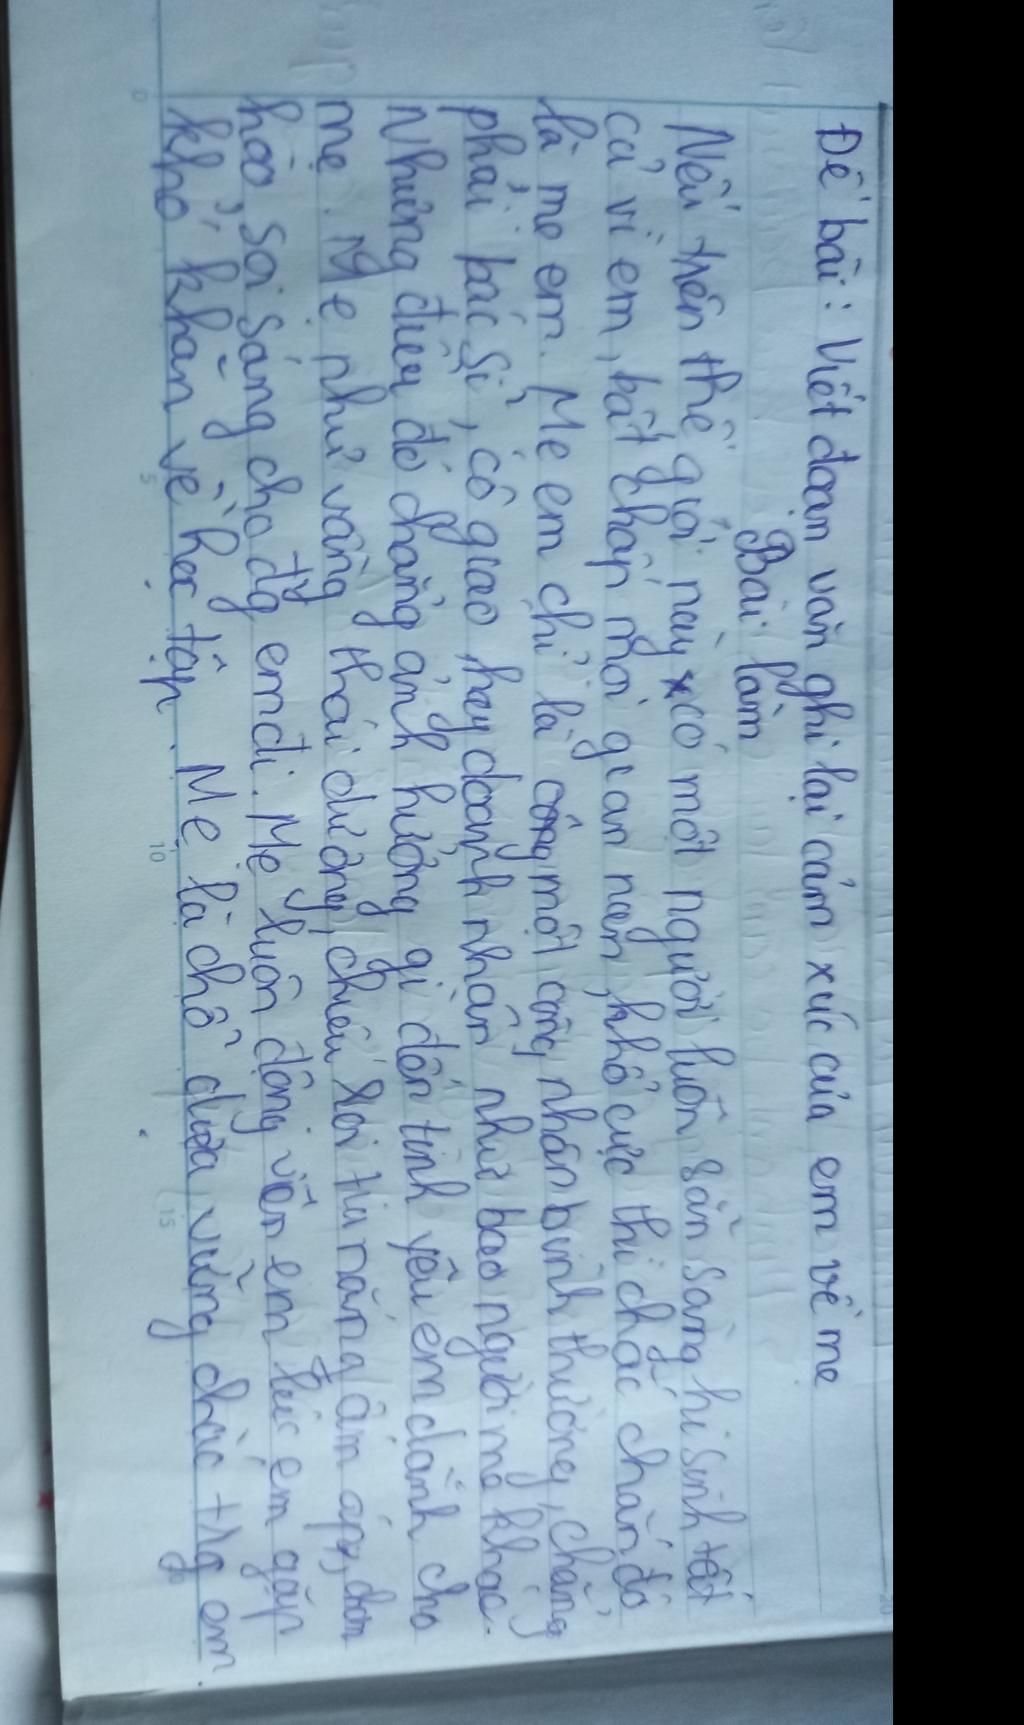 Đề bài: Viết đoạn văn ghi lại cảm xúc của em về mẹ
Bài làm
Nếu trên thế giới này có một người luôn sẵn sàng hi sinh tất
cả vì em, bất chấp mọi gian nan, khổ cực thì chắc chắn đó
là mẹ em. Mẹ em chỉ là một công nhân bình thường, chẳng
phải bác sĩ, cô giáo hay doanh nhân như bao người mẹ khác.
Những điều đó chẳng ảnh hưởng gì đến tình yêu em dành cho
mẹ. Mẹ như vầng thái dương, chiếu rọi tia nắng ấm áp, chan
hòa, soi sáng cho đg em đi. Mẹ luôn động viên em lúc em gặp
khó khăn về học tập. Mẹ là chỗ dựa vững chắc trg em.